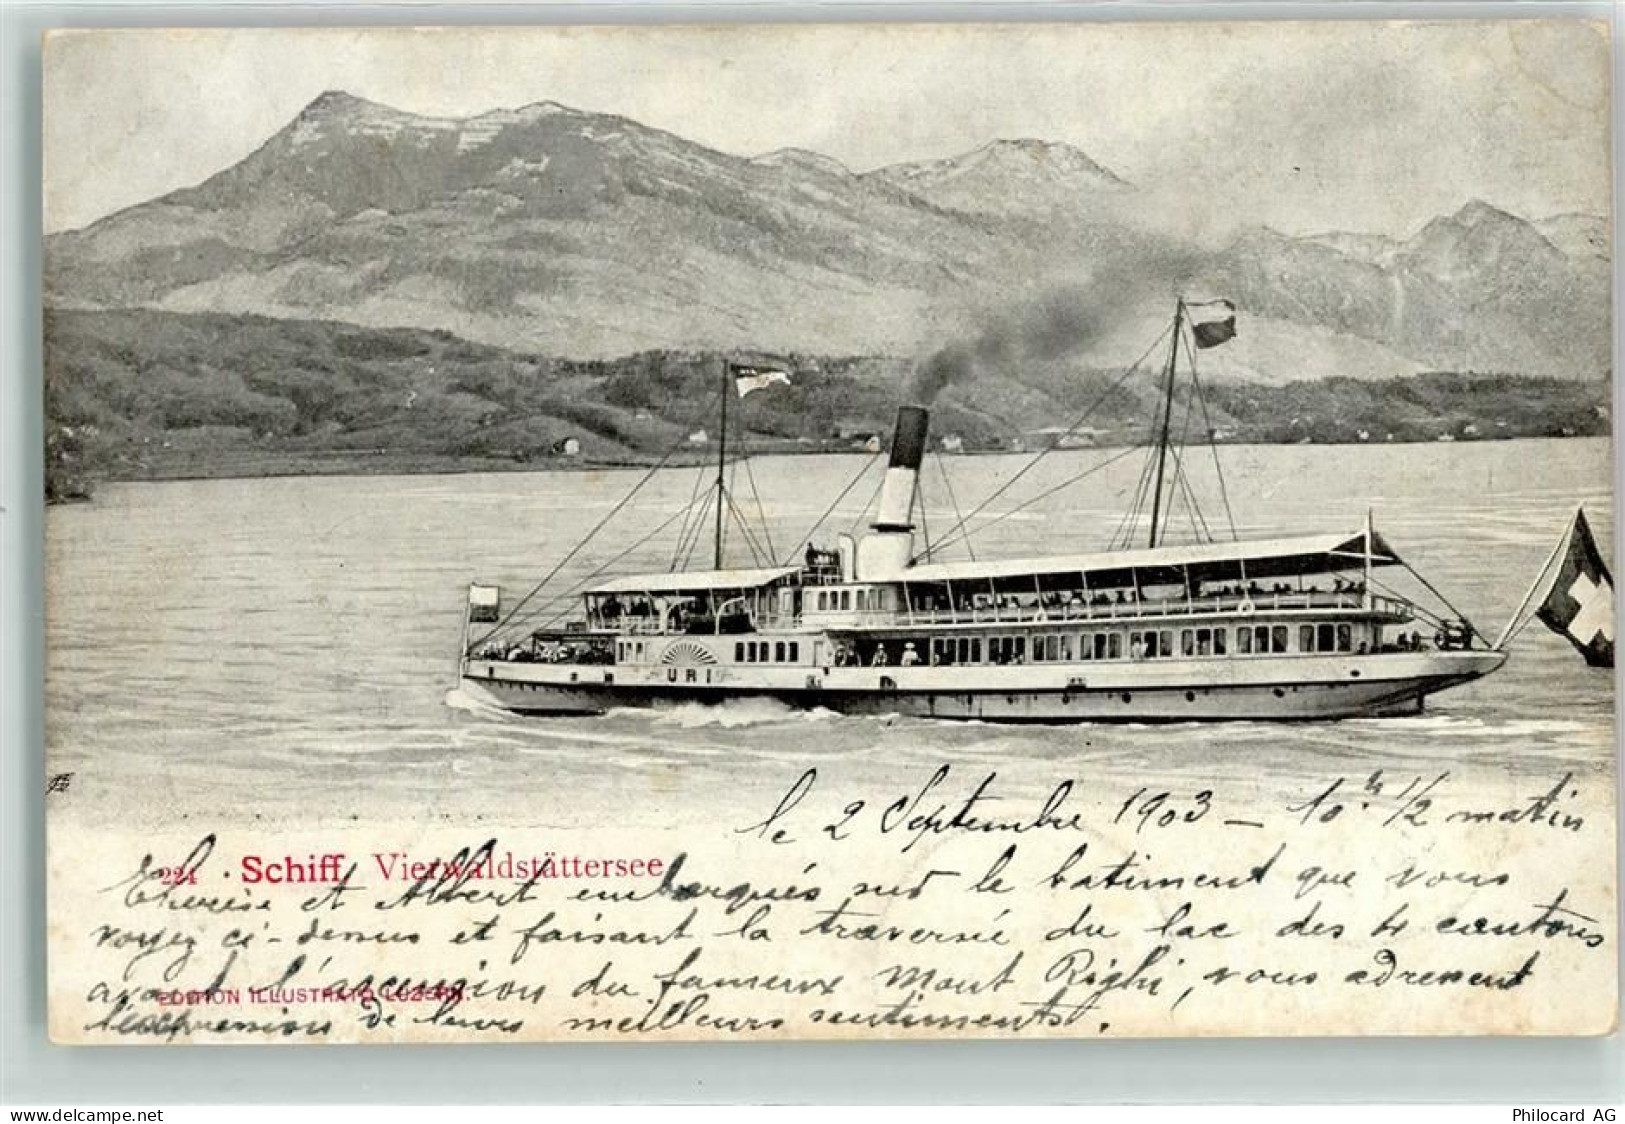 URI
le 2 Septembre 1903 — 10 h 1/2 matin
224 Schiff Vierwaldstättersee
Thérèse et Albert embarqués sur le batiment que vous
voyez ci-dessus et faisant la traversée du lac des 4 cantons
avant l'ascension du fameux Mont Righi, vous adressent
EDITION ILLUSTRATO LUZERN.
l'expression de leurs meilleurs sentiments.
www.delcampe.net
Philocard AG